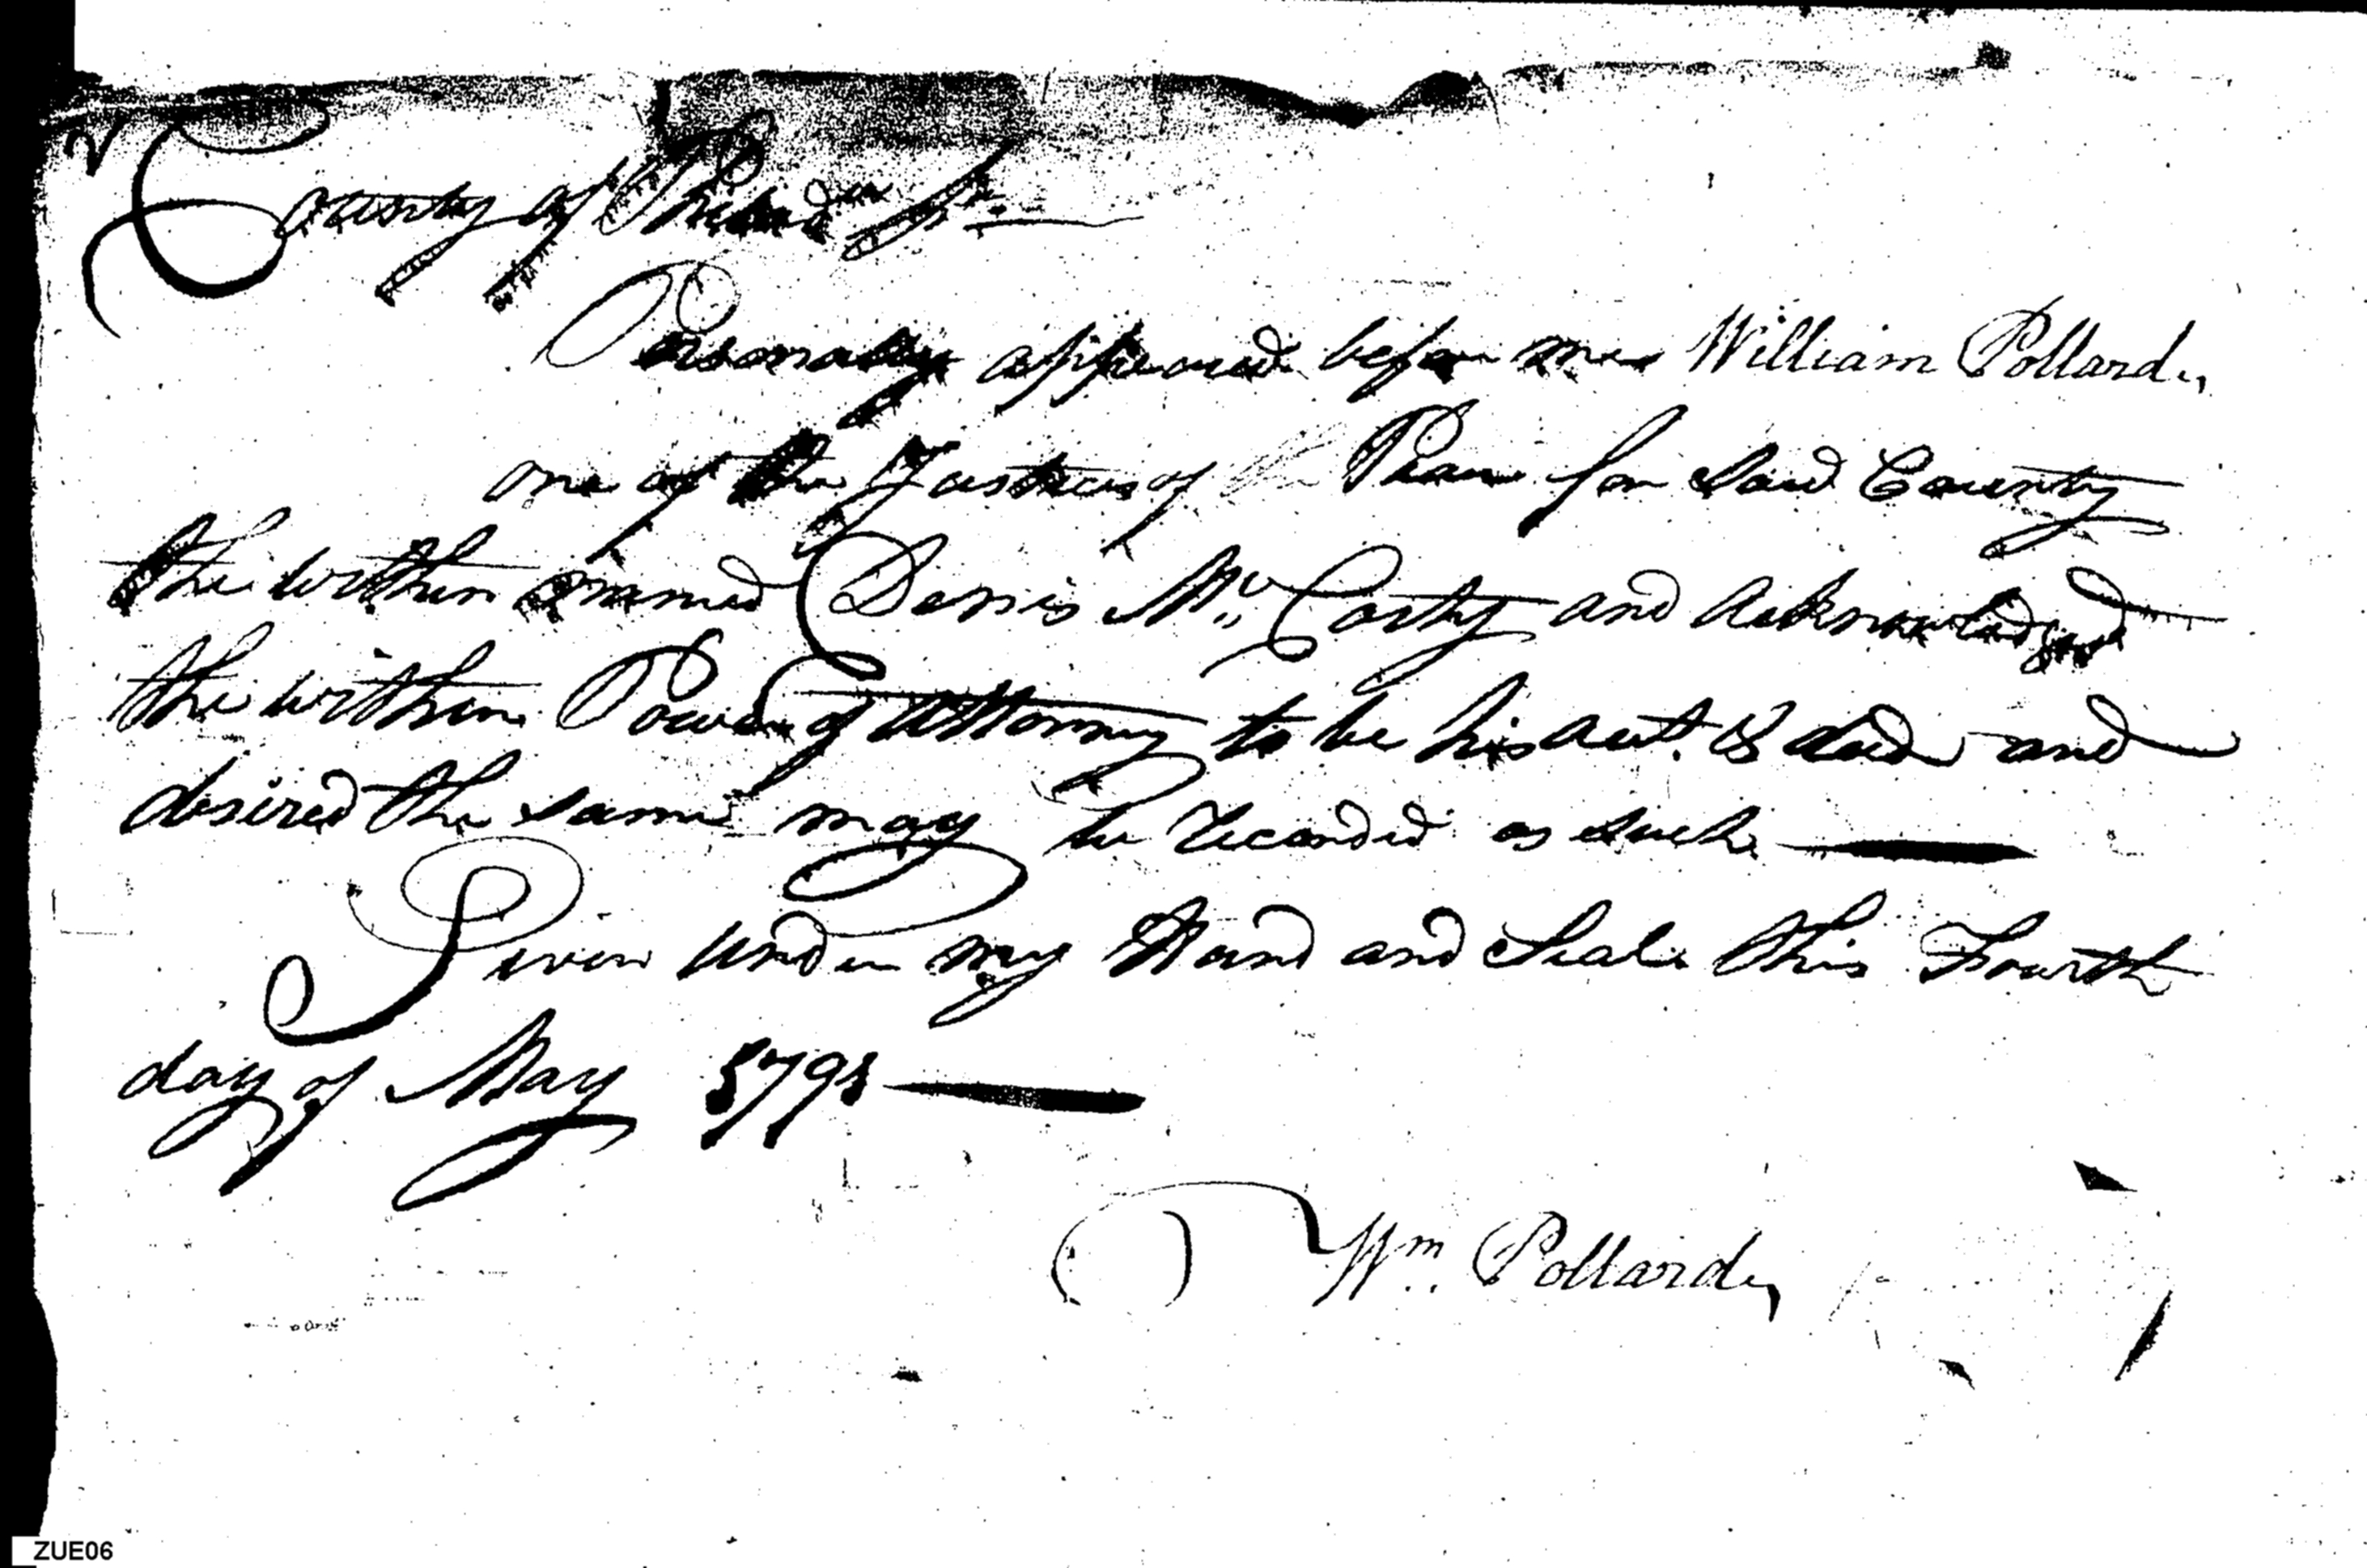 County of Philad.a Ss.
Personally appeared before me William Pollard
one of the Justices of the Peace for said County
the within named Denis Mc Carty and acknowledged
the within Power of Attorney to be his act & deed and
desired the same may be recorded as such
Given under my Hand and Seal this Fourth
day of May
Wm. Pollard
ZUE06